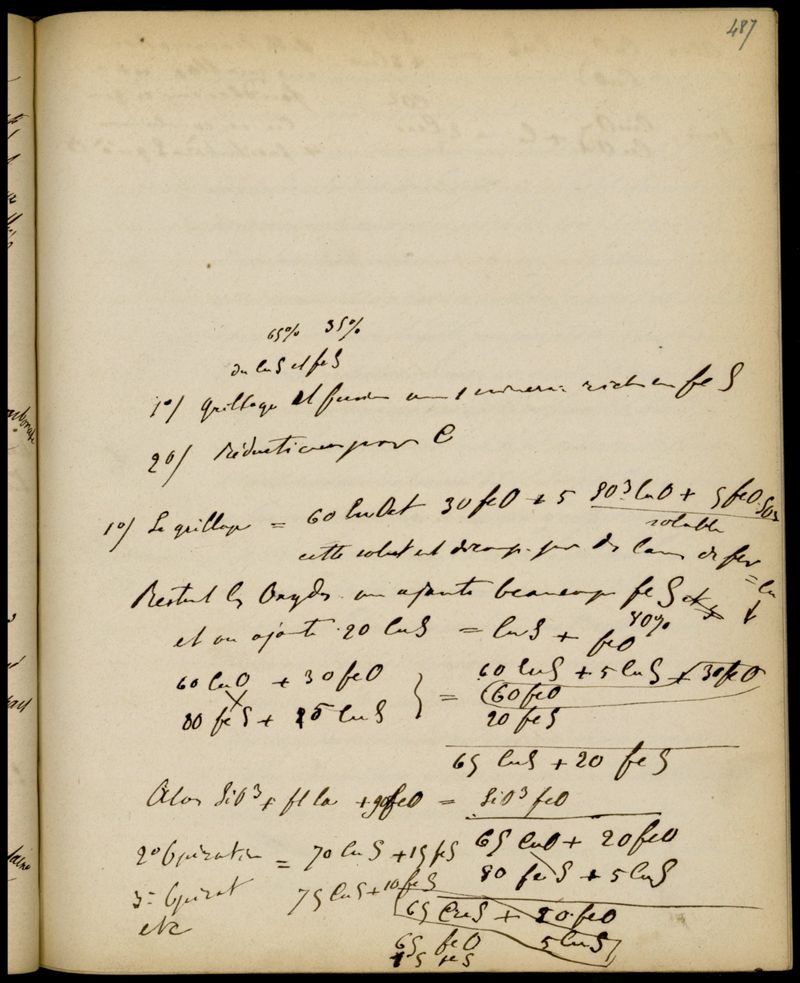 487
65% 35%
du CuS et feS
1°/ Grillage et fusion avec minerai riche en feS
2°/ Réduction par C
1°/ Le grillage = 60 CuO et 30 feO + 5 SO³CuO + 5 feO.SO3
soluble
cette solut est décomp. par des lam de fer = Cu
Restent les Oxydes. on ajoute beaucoup feS
80%
et on ajoute 20 CuS = CuS + feO
60 CuO + 30 feO } = 60 CuS + 5 CuS + 30 feO
80 feS + 5 CuS 60 feO
20 feS
65 CuS + 20 feS
Alors SiO³ + + 90 feO = SiO³ feO
2° Opération = 70 CuS + 15 feS 65 CuO + 20 feO
80 feS + 5 CuS
3e Opérat 75 CuS + 10 feS
etc 65 CuS + 20 feO
65 feO 5 CuS
15 feS